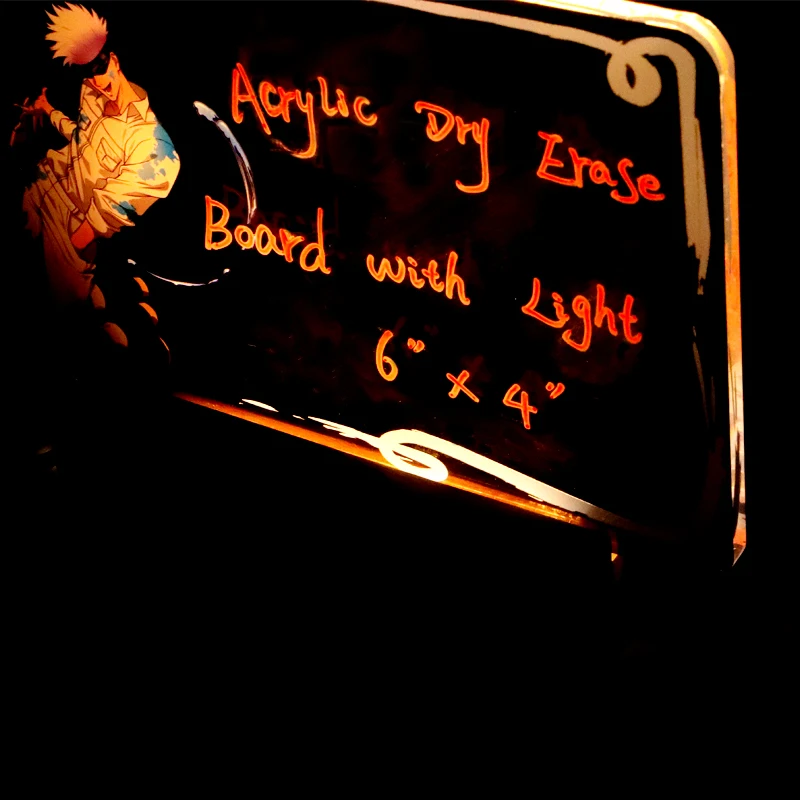 Acrylic Dry Erase
Board with Light
6" x 4"